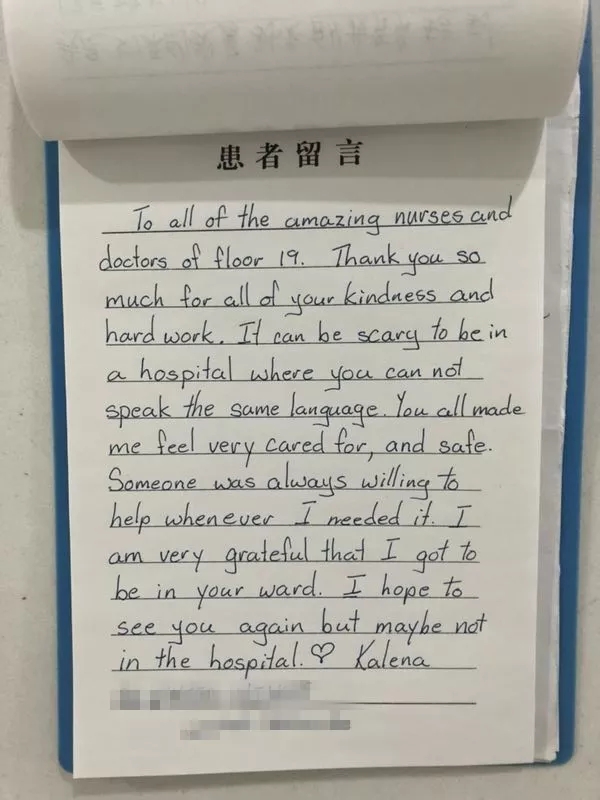 患者留言
To all of the amazing nurses and
doctors of floor 19. Thank you so
much for all of your kindness and
hard work. It can be scary to be in
a hospital where you can not
speak the same language. You all made
me feel very cared for, and safe.
Someone was always willing to
help whenever I needed it. I
am very grateful that I got to
be in your ward. I hope to
see you again but maybe not
in the hospital. ♡ Kalena